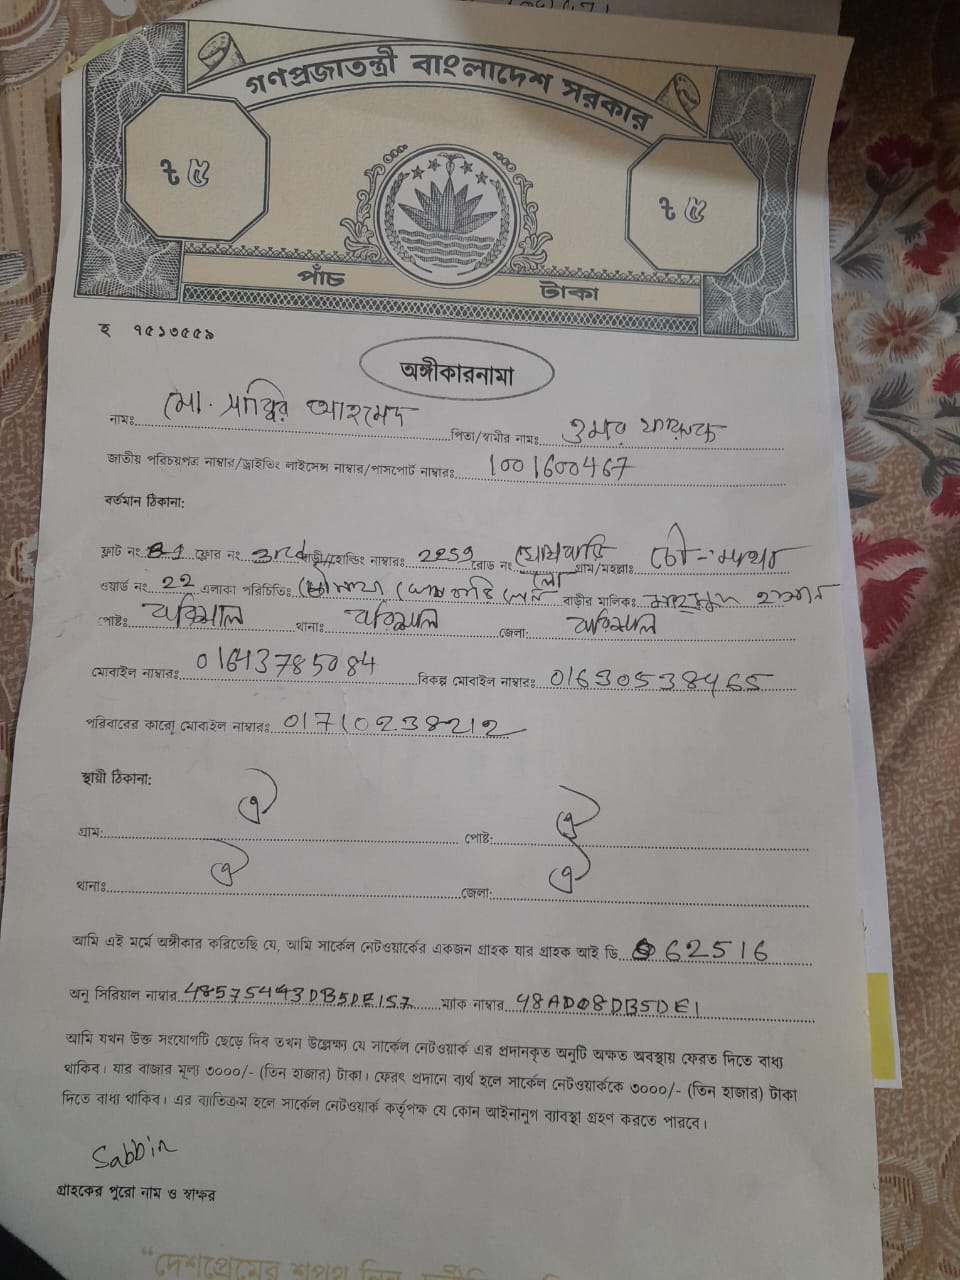 গণপ্রজাতন্ত্রী বাংলাদেশ সরকার
৳ ৫ ৳ ৫
পাঁচ টাকা
হ ৭৫১৩৫৫৯
অঙ্গীকারনামা
নামঃ মো. সাব্বির আহমেদ পিতা/স্বামীর নামঃ ওমর ফারুক
জাতীয় পরিচয়পত্র নাম্বার/ড্রাইভিং লাইসেন্স নাম্বার/পাসপোর্ট নাম্বারঃ 1001600467
বর্তমান ঠিকানা:
ফ্লাট নং B-1 ফ্লোর নং 3rd বাড়ী/হোল্ডিং নাম্বারঃ 2259 রোড নং গ্রাম/মহল্লাঃ চৌ-মাথা
ওয়ার্ড নং 22 এলাকা পরিচিতিঃ লেন বাড়ীর মালিকঃ মাহমুদ হাসান
পোষ্টঃ বরিশাল থানাঃ বরিশাল জেলা: বরিশাল
মোবাইল নাম্বারঃ 01643785084 বিকল্প মোবাইল নাম্বারঃ 01630538465
পরিবারের কারো মোবাইল নাম্বারঃ 01710238212
স্থায়ী ঠিকানা:
গ্রাম: ঐ পোষ্ট: ঐ
থানাঃ ঐ জেলা: ঐ
আমি এই মর্মে অঙ্গীকার করিতেছি যে, আমি সার্কেল নেটওয়ার্কের একজন গ্রাহক যার গ্রাহক আই ডি 62516
অনু সিরিয়াল নাম্বার 48575443DB5DE157 ম্যাক নাম্বার 48AD08DB5DE1
আমি যখন উক্ত সংযোগটি ছেড়ে দিব তখন উল্লেক্ষ্য যে সার্কেল নেটওয়ার্ক এর প্রদানকৃত অনুটি অক্ষত অবস্থায় ফেরত দিতে বাধ্য
থাকিব। যার বাজার মূল্য ৩০০০/- (তিন হাজার) টাকা। ফেরৎ প্রদানে ব্যর্থ হলে সার্কেল নেটওয়ার্ককে ৩০০০/- (তিন হাজার) টাকা
দিতে বাধ্য থাকিব। এর ব্যতিক্রম হলে সার্কেল নেটওয়ার্ক কর্তৃপক্ষ যে কোন আইনানুগ ব্যবস্থা গ্রহণ করতে পারবে।
Sabbir
গ্রাহকের পুরো নাম ও স্বাক্ষর
“দেশপ্রেমের শপথ নিন